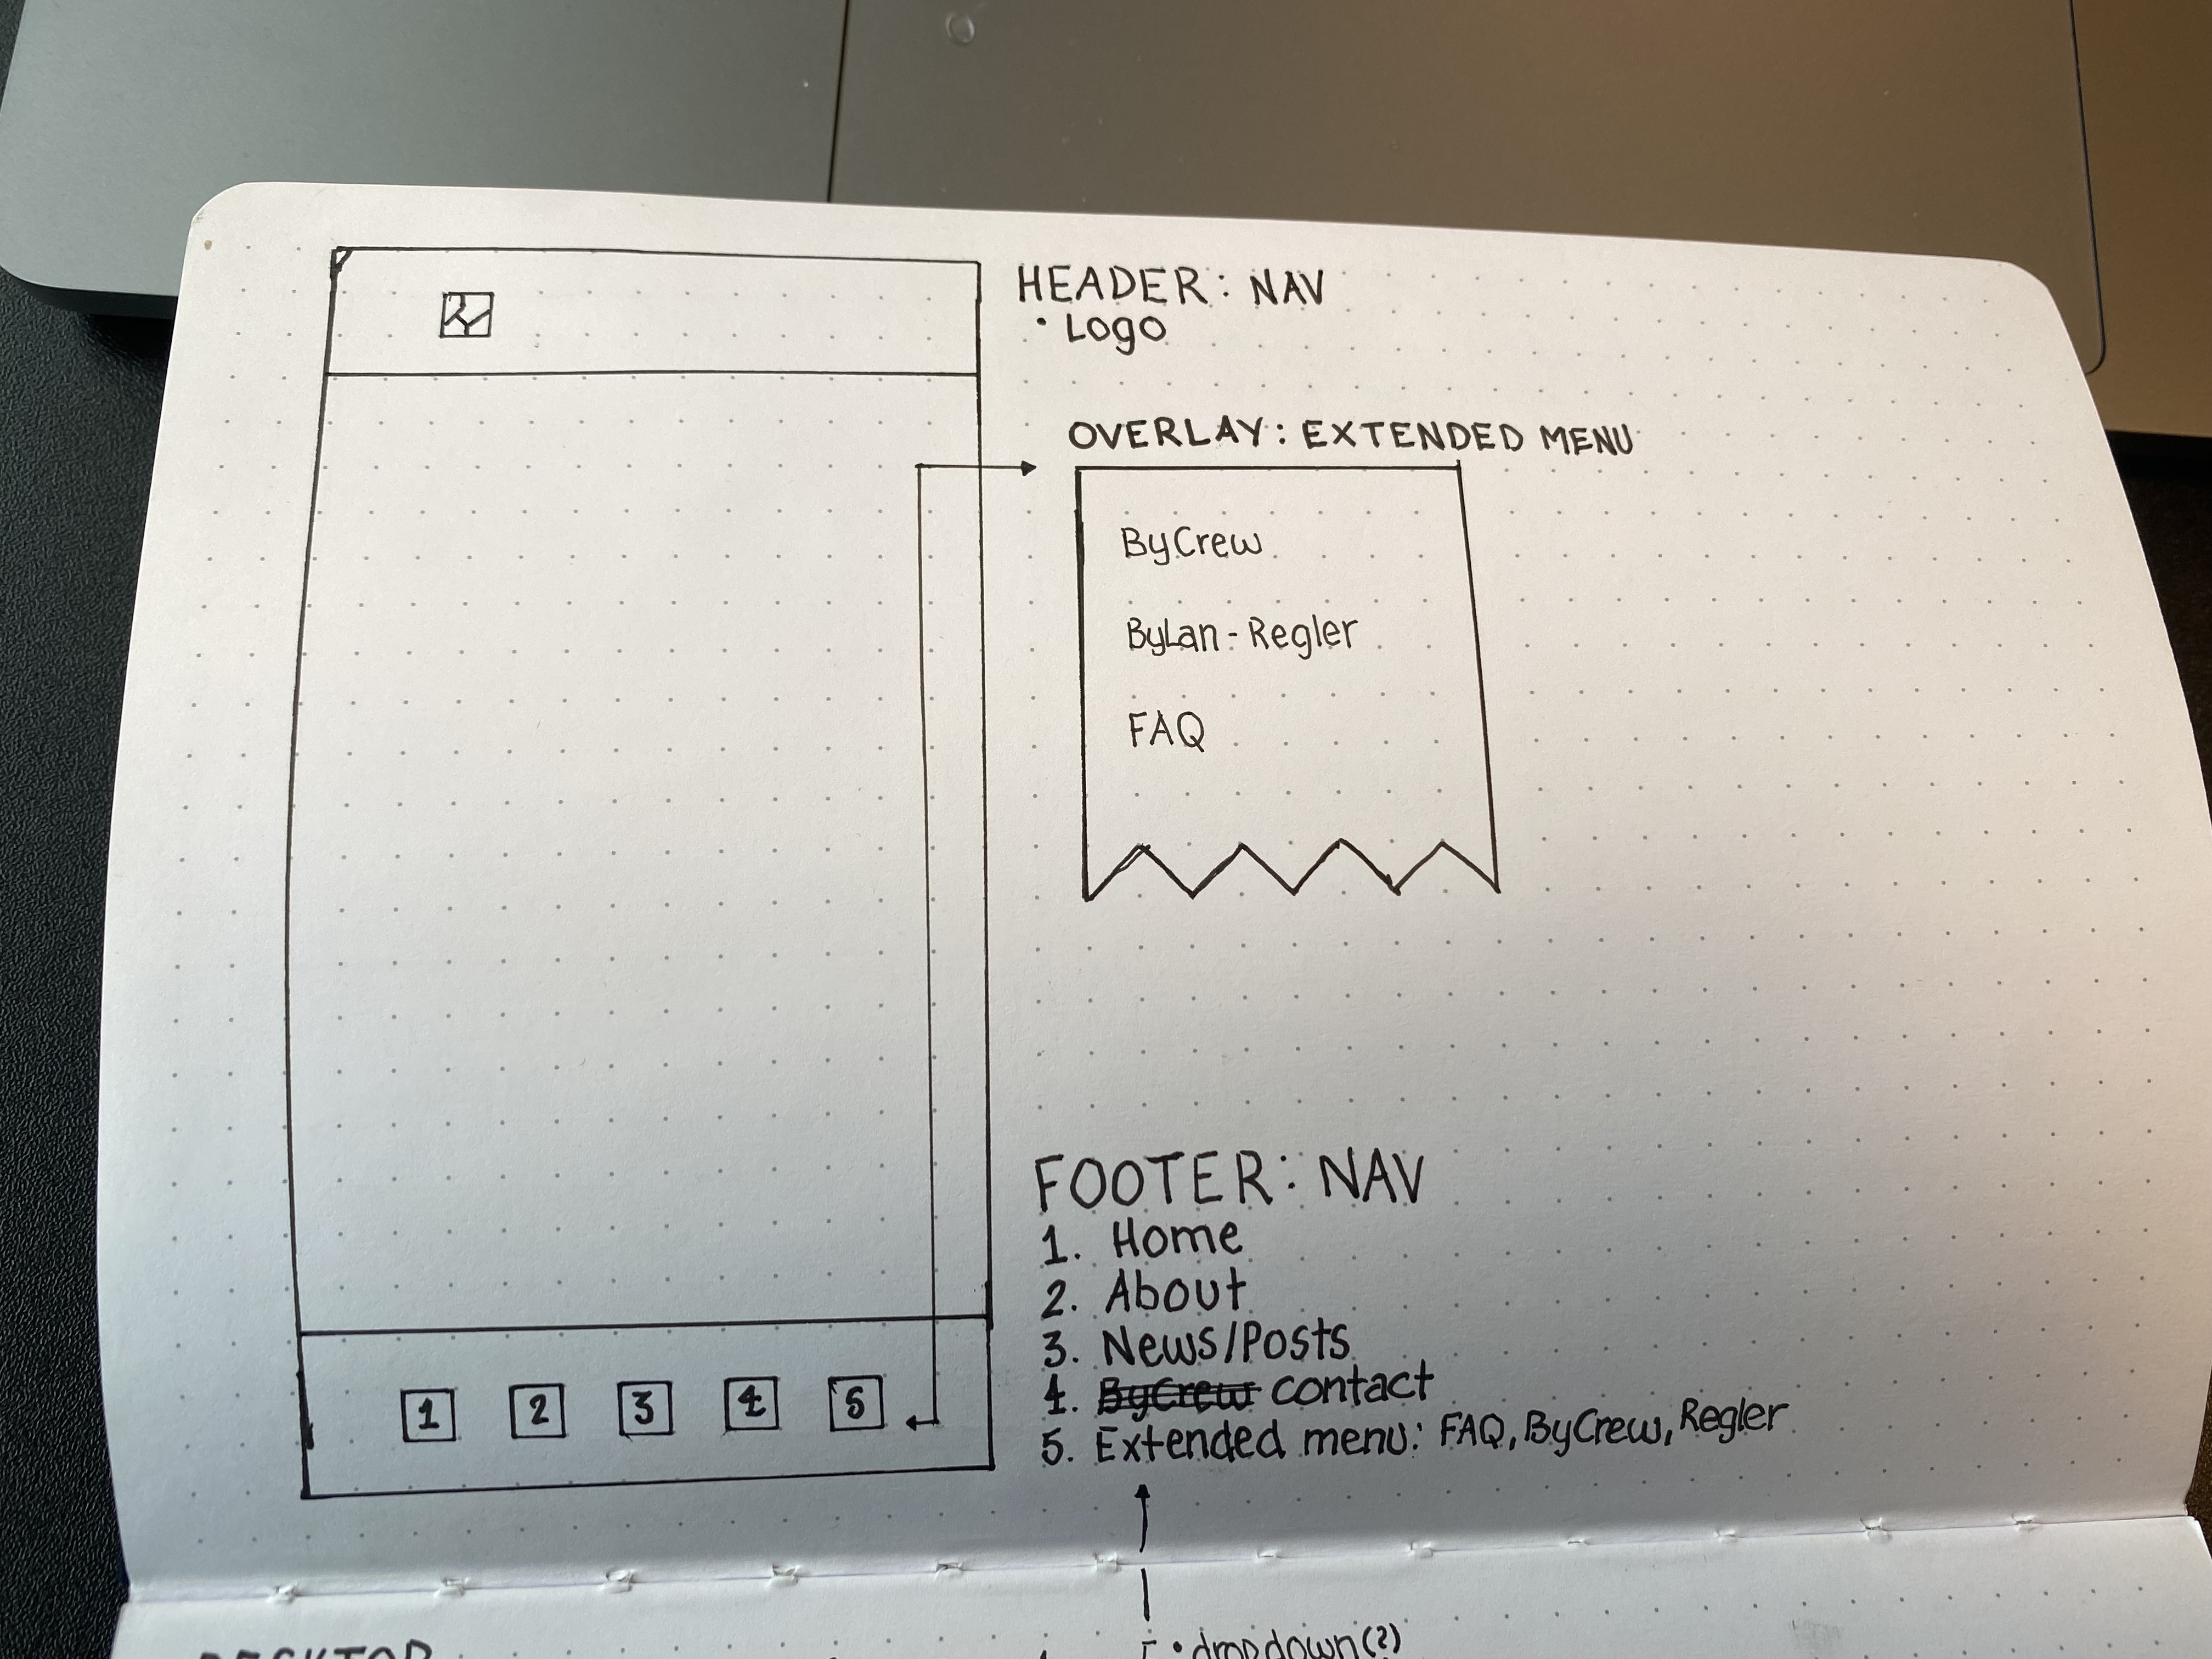 HEADER: NAV
• Logo
OVERLAY: EXTENDED MENU
ByCrew
ByLan-Regler
FAQ
FOOTER: NAV
1. Home
2. About
3. News/Posts
4. ByCrew contact
5. Extended menu: FAQ, ByCrew, Regler
1 2 3 4 5
DESKTOP
• dropdown(?)